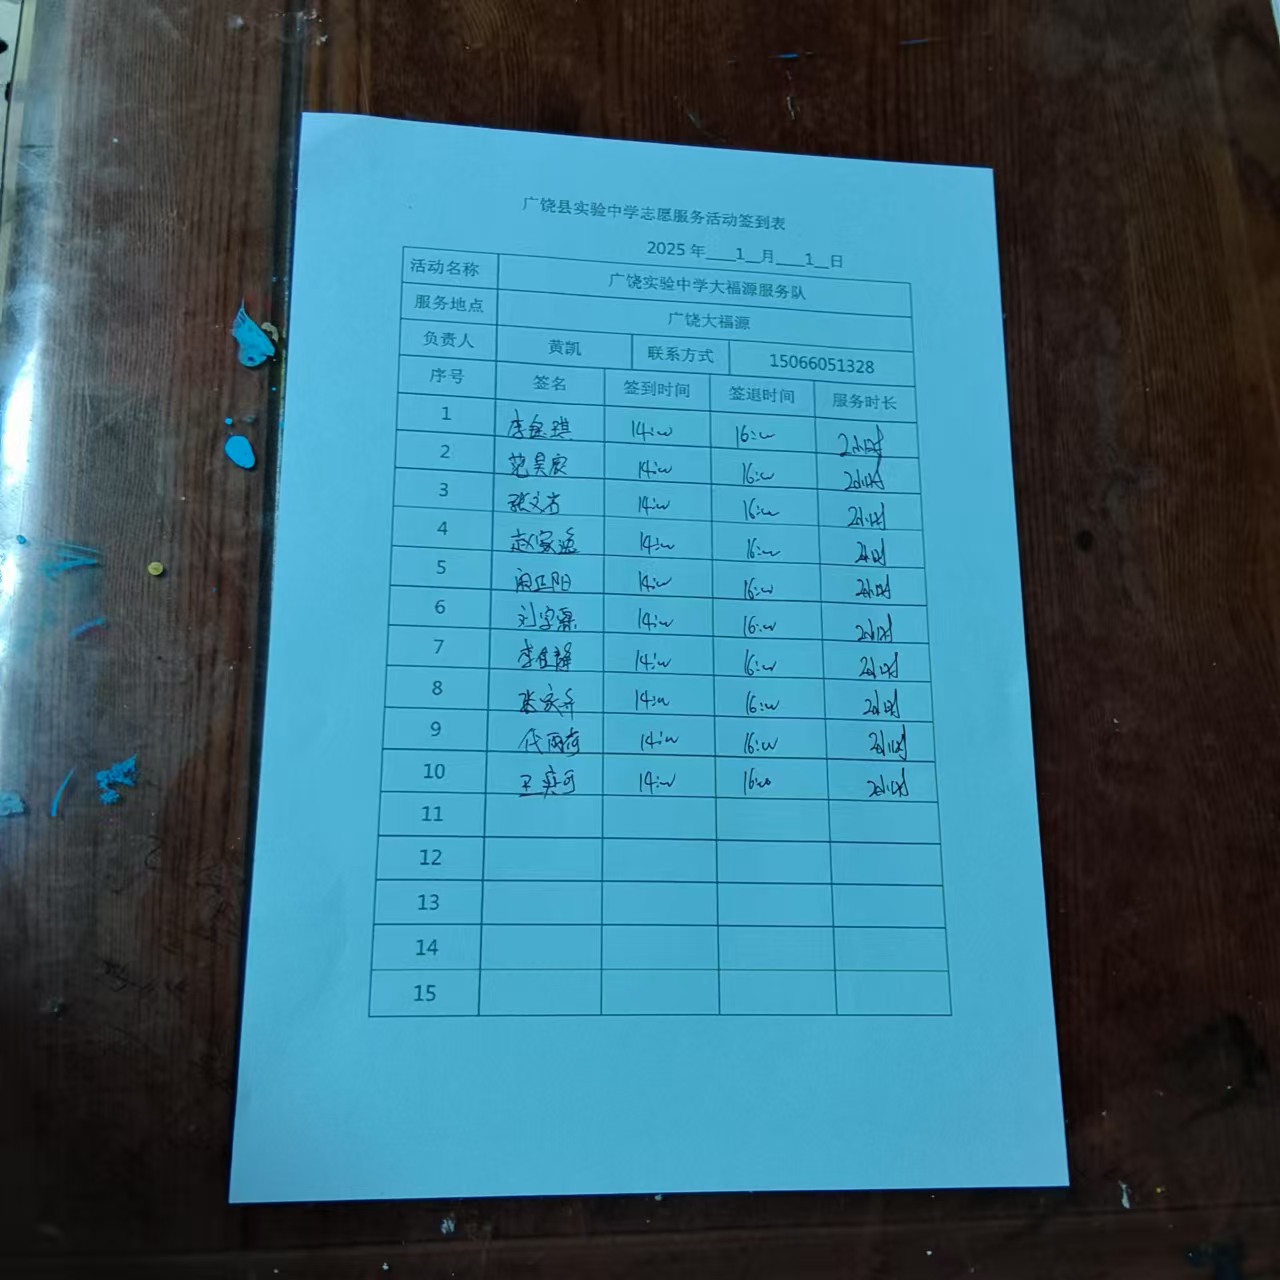 广饶县实验中学志愿服务活动签到表
2025 年___1__月___1__日
活动名称 广饶实验中学大福源服务队
服务地点 广饶大福源
负责人 黄凯 联系方式 15066051328
序号 签名 签到时间 签退时间 服务时长
1 李金琪 14:00 16:00 2小时
2 范昊宸 14:00 16:00 2小时
3 张文 14:00 16:00 2小时
4 赵家 14:00 16:00 2小时
5 阳 14:00 16:00 2小时
6 刘宇 14:00 16:00 2小时
7 李佳静 14:00 16:00 2小时
8 张 14:00 16:00 2小时
9 代雨荷 14:00 16:00 2小时
10 王奕可 14:00 16:00 2小时
11
12
13
14
15